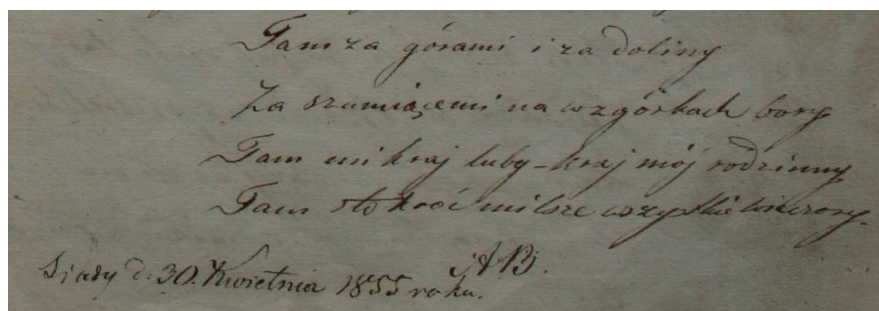 Tam za górami i za doliny
Za szumiącemi na wzgórkach bory
Tam mi kraj luby – kraj mój rodzinny
Tam stokroć milsze wszystkie wieczory.
AB.
d. 30. Kwietnia 1855 roku.